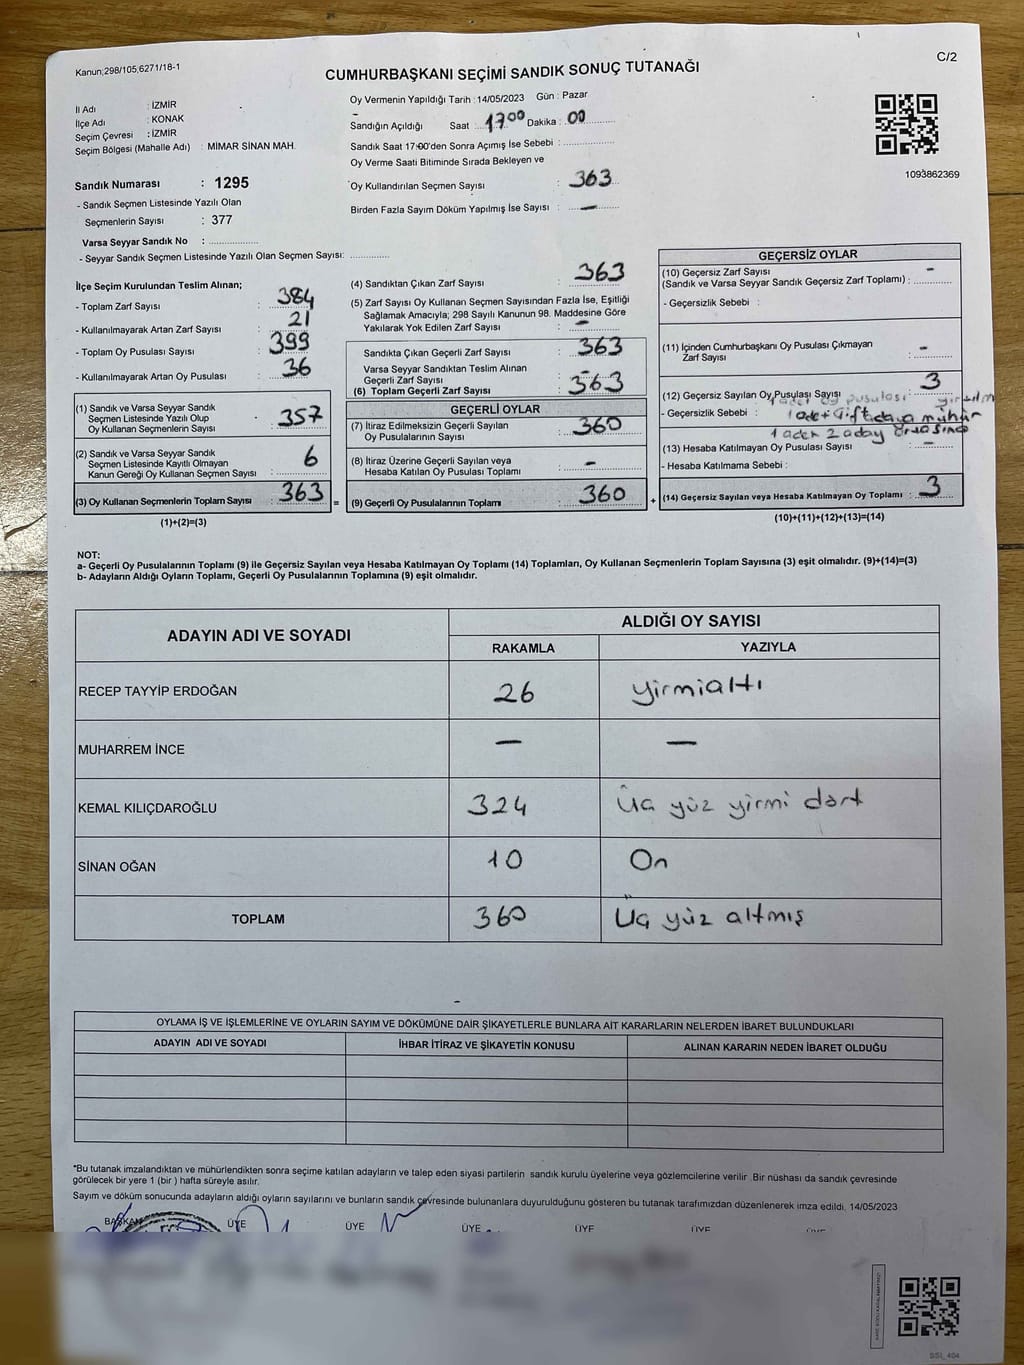 Kanun;298/105,6271/18-1
C/2
CUMHURBAŞKANI SEÇİMİ SANDIK SONUÇ TUTANAĞI
İl Adı : İZMİR
İlçe Adı : KONAK
Seçim Çevresi : İZMİR
Seçim Bölgesi (Mahalle Adı) : MİMAR SİNAN MAH.
Sandık Numarası : 1295
- Sandık Seçmen Listesinde Yazılı Olan
Seçmenlerin Sayısı : 377
Varsa Seyyar Sandık No :
- Seyyar Sandık Seçmen Listesinde Yazılı Olan Seçmen Sayısı:
Oy Vermenin Yapıldığı Tarih : 14/05/2023 Gün : Pazar
Sandığın Açıldığı Saat : 17:00 Dakika : 00
Sandık Saat 17:00'den Sonra Açımış İse Sebebi :
Oy Verme Saati Bitiminde Sırada Bekleyen ve
Oy Kullandırılan Seçmen Sayısı : 363
Birden Fazla Sayım Döküm Yapılmış İse Sayısı : —
1093862369
İlçe Seçim Kurulundan Teslim Alınan;
- Toplam Zarf Sayısı : 384
- Kullanılmayarak Artan Zarf Sayısı : 21
- Toplam Oy Pusulası Sayısı : 399
- Kullanılmayarak Artan Oy Pusulası : 36
(1) Sandık ve Varsa Seyyar Sandık
Seçmen Listesinde Yazılı Olup
Oy Kullanan Seçmenlerin Sayısı : 357
(2) Sandık ve Varsa Seyyar Sandık
Seçmen Listesinde Kayıtlı Olmayan
Kanun Gereği Oy Kullanan Seçmen Sayısı : 6
(3) Oy Kullanan Seçmenlerin Toplam Sayısı : 363
(1)+(2)=(3)
=
(4) Sandıktan Çıkan Zarf Sayısı : 363
(5) Zarf Sayısı Oy Kullanan Seçmen Sayısından Fazla İse, Eşitliği
Sağlamak Amacıyla; 298 Sayılı Kanunun 98. Maddesine Göre
Yakılarak Yok Edilen Zarf Sayısı : —
Sandıkta Çıkan Geçerli Zarf Sayısı : 363
Varsa Seyyar Sandıktan Teslim Alınan
Geçerli Zarf Sayısı : —
(6) Toplam Geçerli Zarf Sayısı : 363
GEÇERLİ OYLAR
(7) İtiraz Edilmeksizin Geçerli Sayılan
Oy Pusulalarının Sayısı : 360
(8) İtiraz Üzerine Geçerli Sayılan veya
Hesaba Katılan Oy Pusulası Toplamı : —
(9) Geçerli Oy Pusulalarının Toplamı : 360
+
GEÇERSİZ OYLAR
(10) Geçersiz Zarf Sayısı
(Sandık ve Varsa Seyyar Sandık Geçersiz Zarf Toplamı) : —
- Geçersizlik Sebebi :
(11) İçinden Cumhurbaşkanı Oy Pusulası Çıkmayan
Zarf Sayısı : —
(12) Geçersiz Sayılan Oy Pusulası Sayısı : 3
1 adet oy pusulası
- Geçersizlik Sebebi : 1 adet 4 mühür
1 adet 2 aday arasında
(13) Hesaba Katılmayan Oy Pusulası Sayısı : —
- Hesaba Katılmama Sebebi :
(14) Geçersiz Sayılan veya Hesaba Katılmayan Oy Toplamı : 3
(10)+(11)+(12)+(13)=(14)
NOT:
a- Geçerli Oy Pusulalarının Toplamı (9) ile Geçersiz Sayılan veya Hesaba Katılmayan Oy Toplamı (14) Toplamları, Oy Kullanan Seçmenlerin Toplam Sayısına (3) eşit olmalıdır. (9)+(14)=(3)
b- Adayların Aldığı Oyların Toplamı, Geçerli Oy Pusulalarının Toplamına (9) eşit olmalıdır.
ADAYIN ADI VE SOYADI
ALDIĞI OY SAYISI
RAKAMLA YAZIYLA
RECEP TAYYİP ERDOĞAN 26 yirmialtı
MUHARREM İNCE — —
KEMAL KILIÇDAROĞLU 324 Üç yüz yirmi dört
SİNAN OĞAN 10 On
TOPLAM 360 Üç yüz altmış
OYLAMA İŞ VE İŞLEMLERİNE VE OYLARIN SAYIM VE DÖKÜMÜNE DAİR ŞİKAYETLERLE BUNLARA AİT KARARLARIN NELERDEN İBARET BULUNDUKLARI
ADAYIN ADI VE SOYADI İHBAR İTİRAZ VE ŞİKAYETİN KONUSU ALINAN KARARIN NEDEN İBARET OLDUĞU
*Bu tutanak imzalandıktan ve mühürlendikten sonra seçime katılan adayların ve talep eden siyasi partilerin sandık kurulu üyelerine veya gözlemcilerine verilir .Bir nüshası da sandık çevresinde
görülecek bir yere 1 (bir ) hafta süreyle asılır.
Sayım ve döküm sonucunda adayların aldığı oyların sayılarını ve bunların sandık çevresinde bulunanlara duyurulduğunu gösteren bu tutanak tarafımızdan düzenlenerek imza edildi. 14/05/2023
BAŞKAN ÜYE ÜYE ÜYE ÜYE ÜYE ÜYE